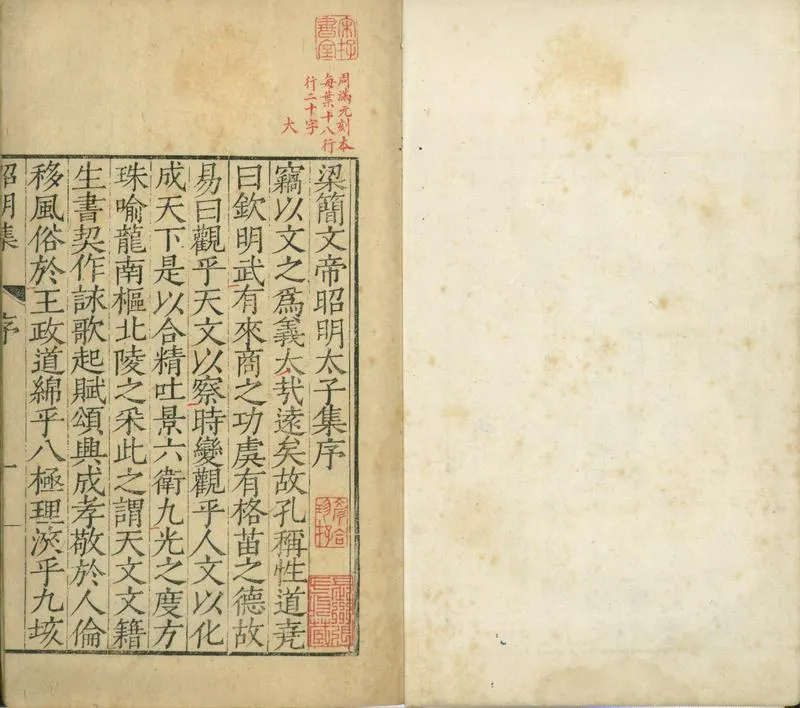 周滿元刻本
每葉十八行
行二十字
大
梁簡文帝昭明太子集序
竊以文之爲義太哉遠矣故孔稱性道堯
曰欽明武有來商之功虞有格苗之德故
易曰觀乎天文以察時變觀乎人文以化
成天下是以合精吐景六衛九光之度方
珠喻龍南樞北陵之采此之謂天文文籍
生書契作詠歌起賦頌興成孝敬於人倫
移風俗於王政道綿乎八極理浹乎九垓
昭明集 序 一